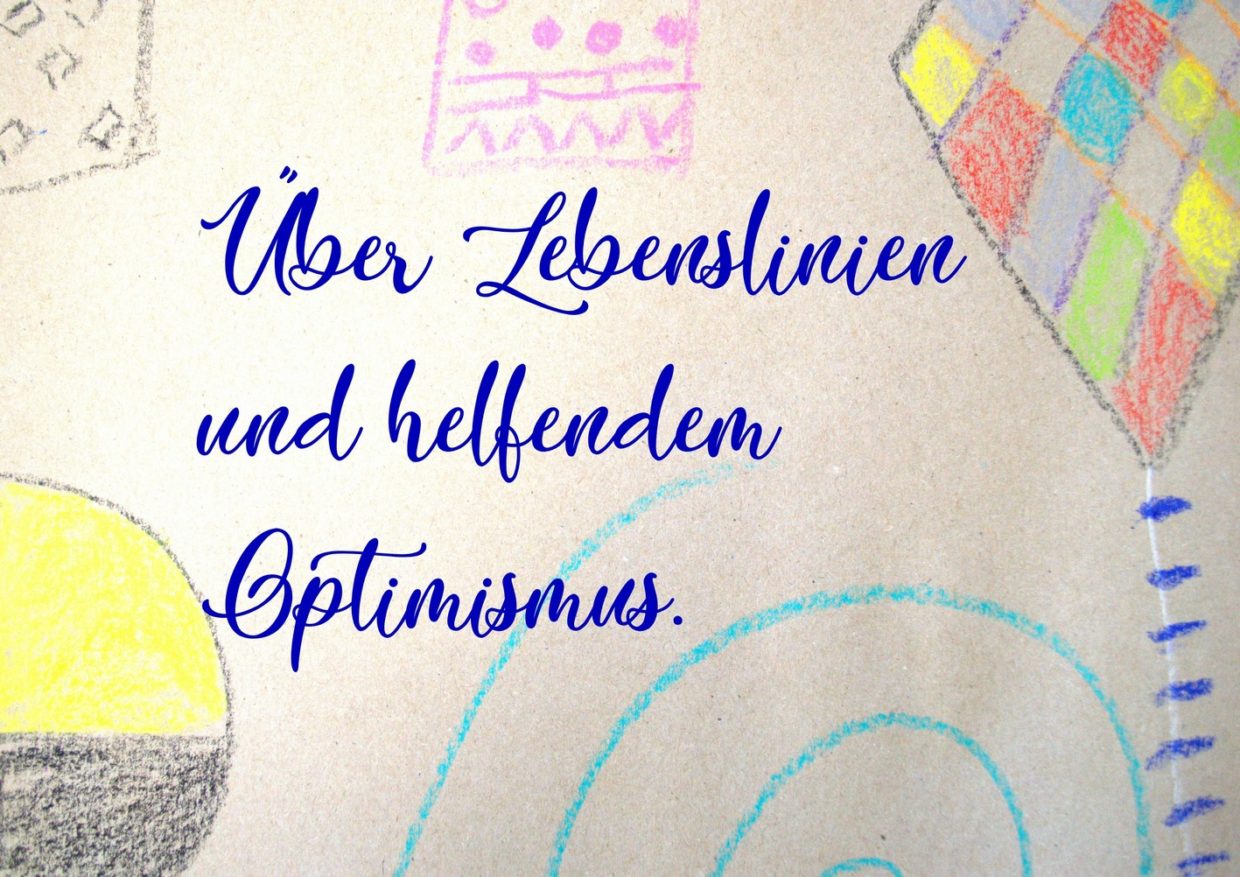 Über Lebenslinien
und helfendem
Optimismus.